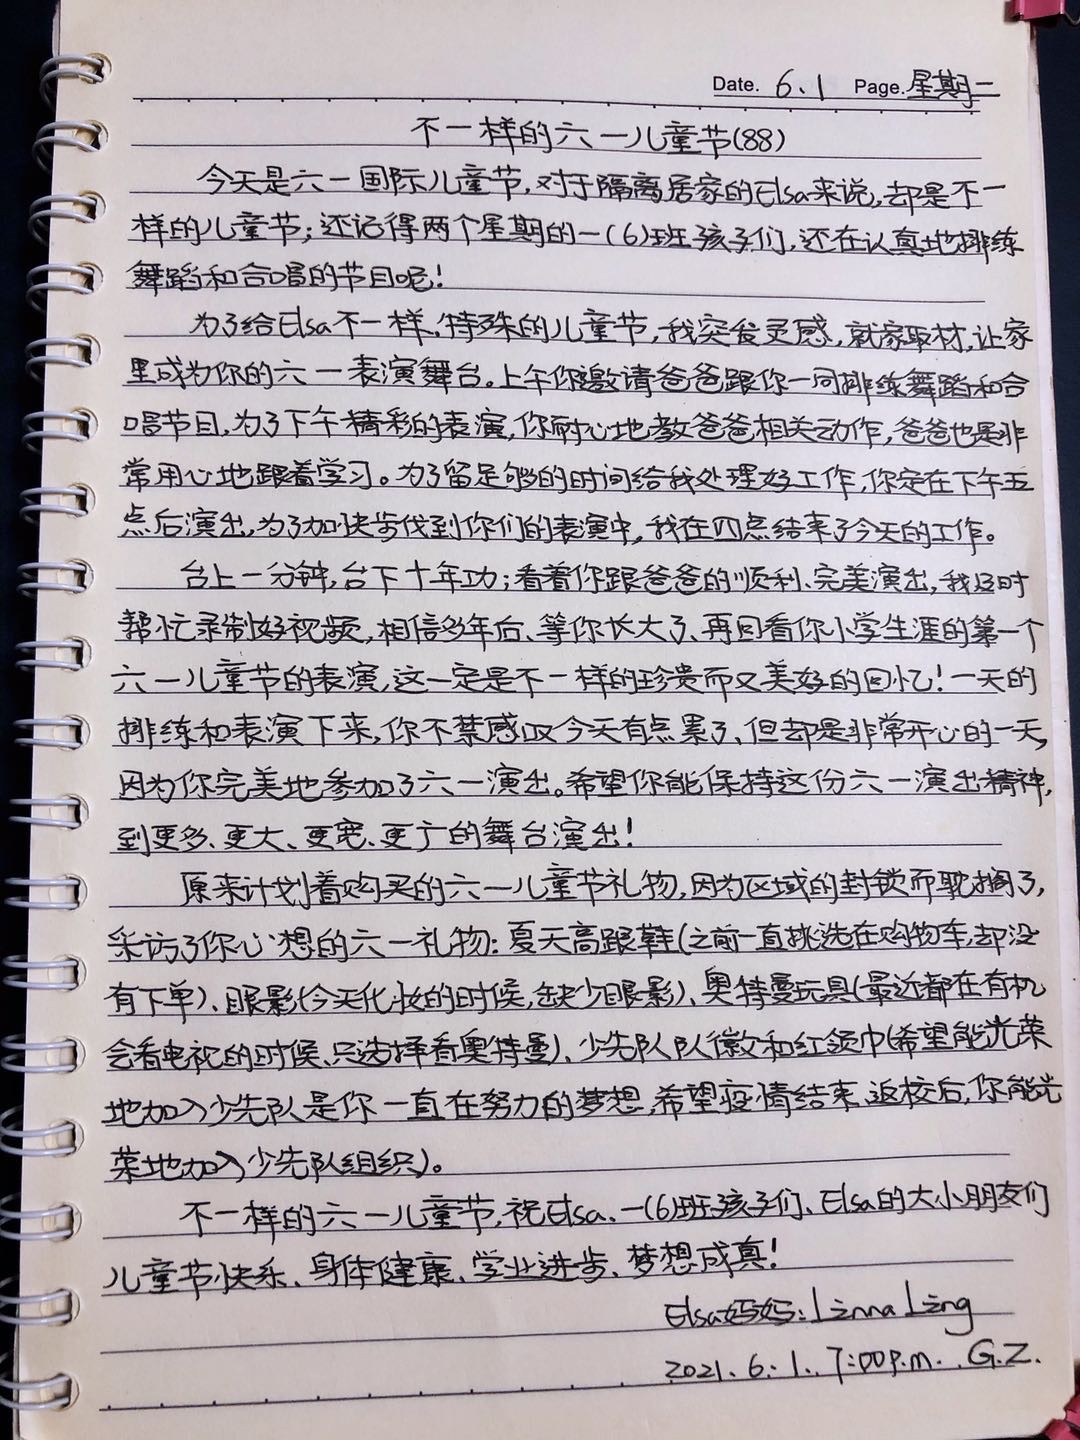 Date. 6.1 Page. 星期二
不一样的六一儿童节(88)
今天是六一国际儿童节,对于隔离居家的Elsa来说,却是不一
样的儿童节;还记得两个星期的一(6)班孩子们,还在认真地排练
舞蹈和合唱的节目呢!
为了给Elsa不一样、特殊的儿童节,我突发灵感,就家取材,让家
里成为你的六一表演舞台。上午你邀请爸爸跟你一同排练舞蹈和合
唱节目,为了下午精彩的表演,你耐心地教爸爸相关动作,爸爸也是非
常用心地跟着学习。为了留足够的时间给我处理好工作,你定在下午五
点后演出,为了加快步伐到你们的表演中,我在四点结束了今天的工作。
台上一分钟,台下十年功;看着你跟爸爸的顺利、完美演出,我及时
帮忙录制好视频,相信多年后、等你长大了、再回看你小学生涯的第一个
六一儿童节的表演,这一定是不一样的珍贵而又美好的回忆!一天的
排练和表演下来,你不禁感叹今天有点累了、但却是非常开心的一天,
因为你完美地参加了六一演出。希望你能保持这份六一演出精神,
到更多、更大、更宽、更广的舞台演出!
原来计划着购买的六一儿童节礼物,因为区域的封锁而耽搁了,
采访了你心想的六一礼物:夏天高跟鞋(之前一直挑选在购物车,却没
有下单)、眼影(今天化妆的时候,缺少眼影)、奥特曼玩具(最近都在有机
会看电视的时候、只选择看奥特曼)、少先队队徽和红领巾(希望能光荣
地加入少先队是你一直在努力的梦想,希望疫情结束、返校后,你能光
荣地加入少先队组织)。
不一样的六一儿童节,祝Elsa、一(6)班孩子们、Elsa的大小朋友们
儿童节快乐、身体健康、学业进步、梦想成真!
Elsa妈妈:Linna Ling
2021.6.1. 7:00p.m. G.Z.